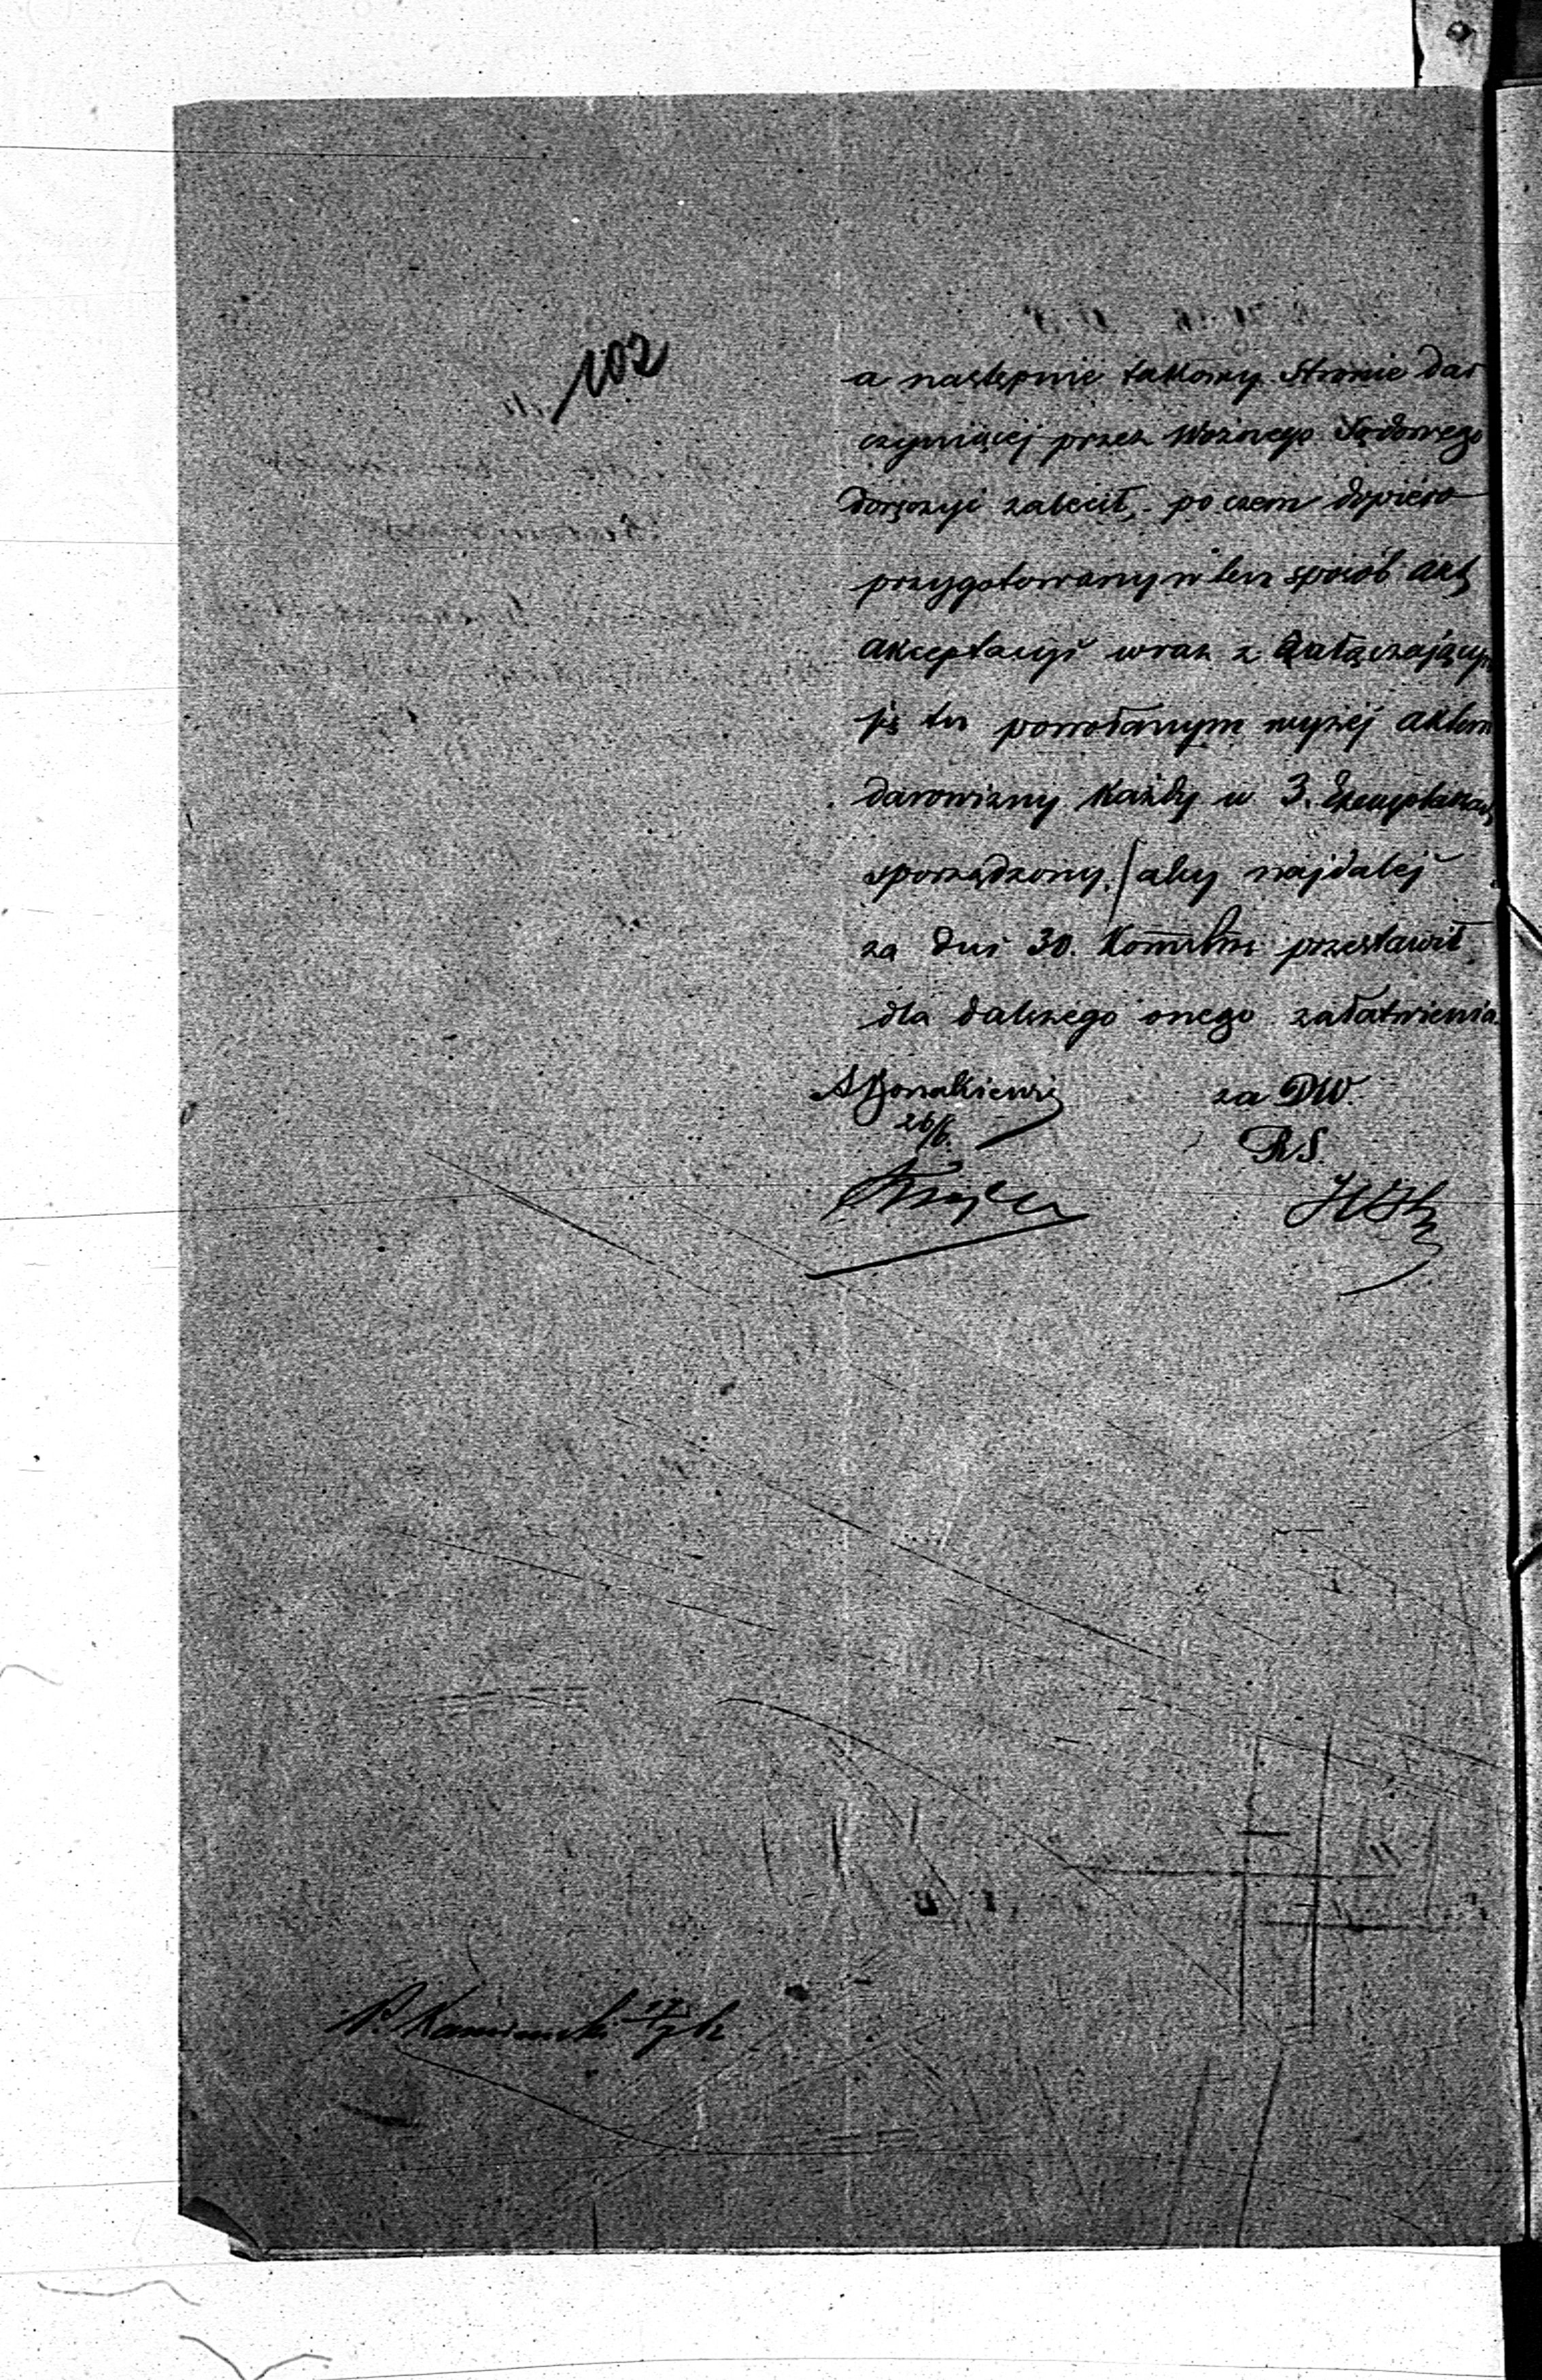 102
a następnie takowy Stronie dar
czyniącej przez Woźnego Sądowego
doręczyć zalecił, po czem dopiero
przygotowany w ten sposób akt
akceptacyi wraz z załączającym
się tu powołanym wyżej aktem
darowizny każdy w 3. Exemplarzach
sporządzony, / aby najdalej
za dni 30. Komułni przestawił,
dla dalszego onego załatwienia.
za DW.
26/6.
RS.